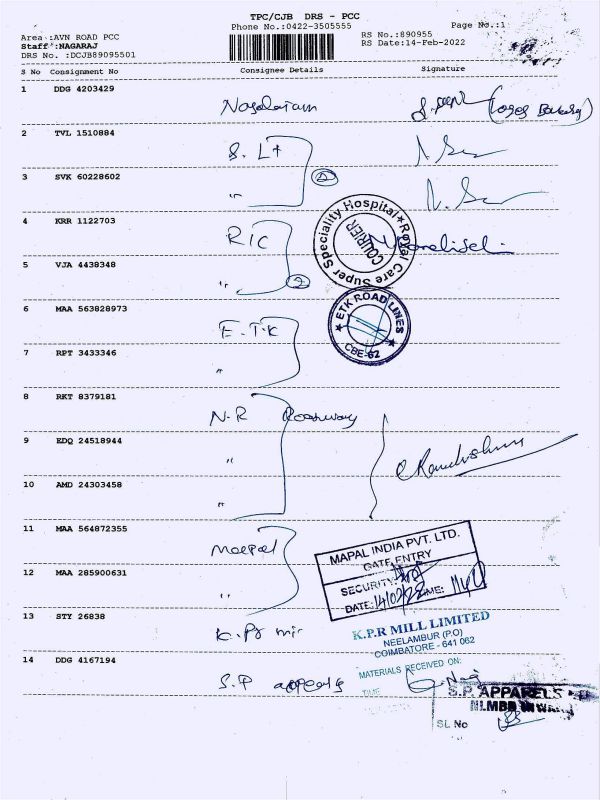 TPC/CJB DRS - PCC
Phone No.:0422-3505555 Page No.:1
Area :AVN ROAD PCC RS No.:890955
Staff :NAGARAJ RS Date:14-Feb-2022
DRS No. :DCJB89095501
S No Consignment No Consignee Details Signature
1 DDG 4203429
2 TVL 1510884
3 SVK 60228602 "
4 KRR 1122703
5 VJA 4438348 "
Royal Care Super Speciality Hospital
COURIER
6 MAA 563828973 E.T.K
ETK ROAD LINES
CBE-62
7 RPT 3433346 "
8 RKT 8379181 N.R Roadway
9 EDQ 24518944 "
10 AMD 24303458 "
11 MAA 564872355
MAPAL INDIA PVT. LTD.
GATE ENTRY
12 MAA 285900631 "
SECURITY:
DATE: 14/02/22 TIME:
13 STY 26838
K.P.R MILL LIMITED
NEELAMBUR (P.O)
COIMBATORE - 641 062
MATERIALS RECEIVED ON:
14 DDG 4167194 S.P
TIME
S.P. APPARELS
NLMBR INWARD
SL No